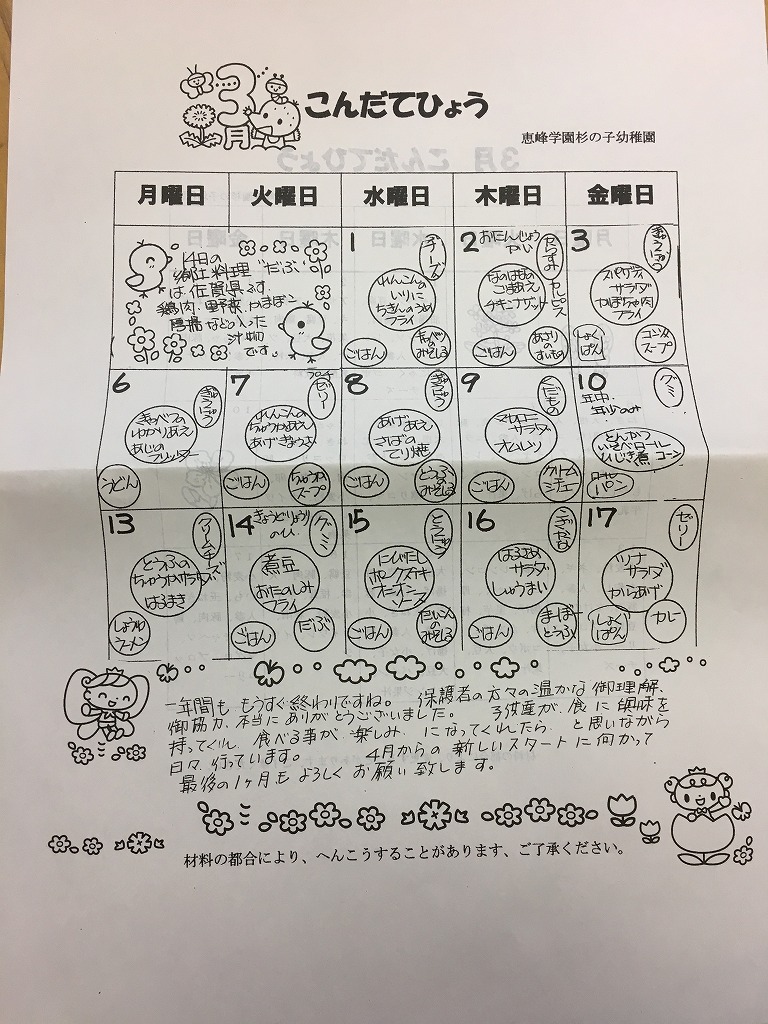 3月
こんだてひょう
恵峰学園杉の子幼稚園
月曜日
火曜日
水曜日
木曜日
金曜日
14日の
郷土料理"だぶ"
は、佐賀県です。
鶏肉、野菜、かまぼこ
など入った
汁物
です。
1
チーズ
れんこんの
いりに
フライ
ごはん
キャベツ
のみそしる
2
おたんじょう
かい
カルピス
なのはなの
ごまあえ
チキンナゲット
ごはん
あさり
のすいもの
3
ぎゅうにゅう
スパゲティ
サラダ
かぼちゃ肉
フライ
しょく
ぱん
コンソメ
スープ
6
ぎゅうにゅう
きゃべつの
ゆかりあえ
あじの
フリッター
うどん
7
プチ
ゼリー
れんこんの
ちゅうかあえ
あげぎょうざ
ごはん
ちゅうか
スープ
8
ぎゅうにゅう
あげあえ
さばの
てり焼
ごはん
とうふの
みそしる
9
くだもの
マカロニ
サラダ
オムレツ
ごはん
クリーム
シチュー
10
年中・
年少のみ
グミ
とんかつ
ひじき煮 コーン
パン
13
クリームチーズ
とうふの
ちゅうかサラダ
はるまき
しょうゆ
ラーメン
14
きょうどりょうり
のひ
グミ
煮豆
おたのしみ
フライ
ごはん
だぶ
15
とうにゅう
にびたし
ポークステーキ
オニオン
ソース
ごはん
だいこん
のみそしる
16
こざかな
はるさめ
サラダ
しゅうまい
ごはん
まーぼ
とうふ
17
ゼリー
ツナ
サラダ
からあげ
しょく
ぱん
カレー
一年間も もうすぐ終わりですね。 保護者の方々の温かな御理解、
御協力、本当にありがとうございました。 子供達が、食に興味を
持ってくれ、食べる事が、楽しみ、になってくれたら、と思いながら
日々、行っています。 4月からの新しいスタートに向かって
最後の1ヶ月も よろしく お願い致します。
材料の都合により、へんこうすることがあります、ご了承ください。